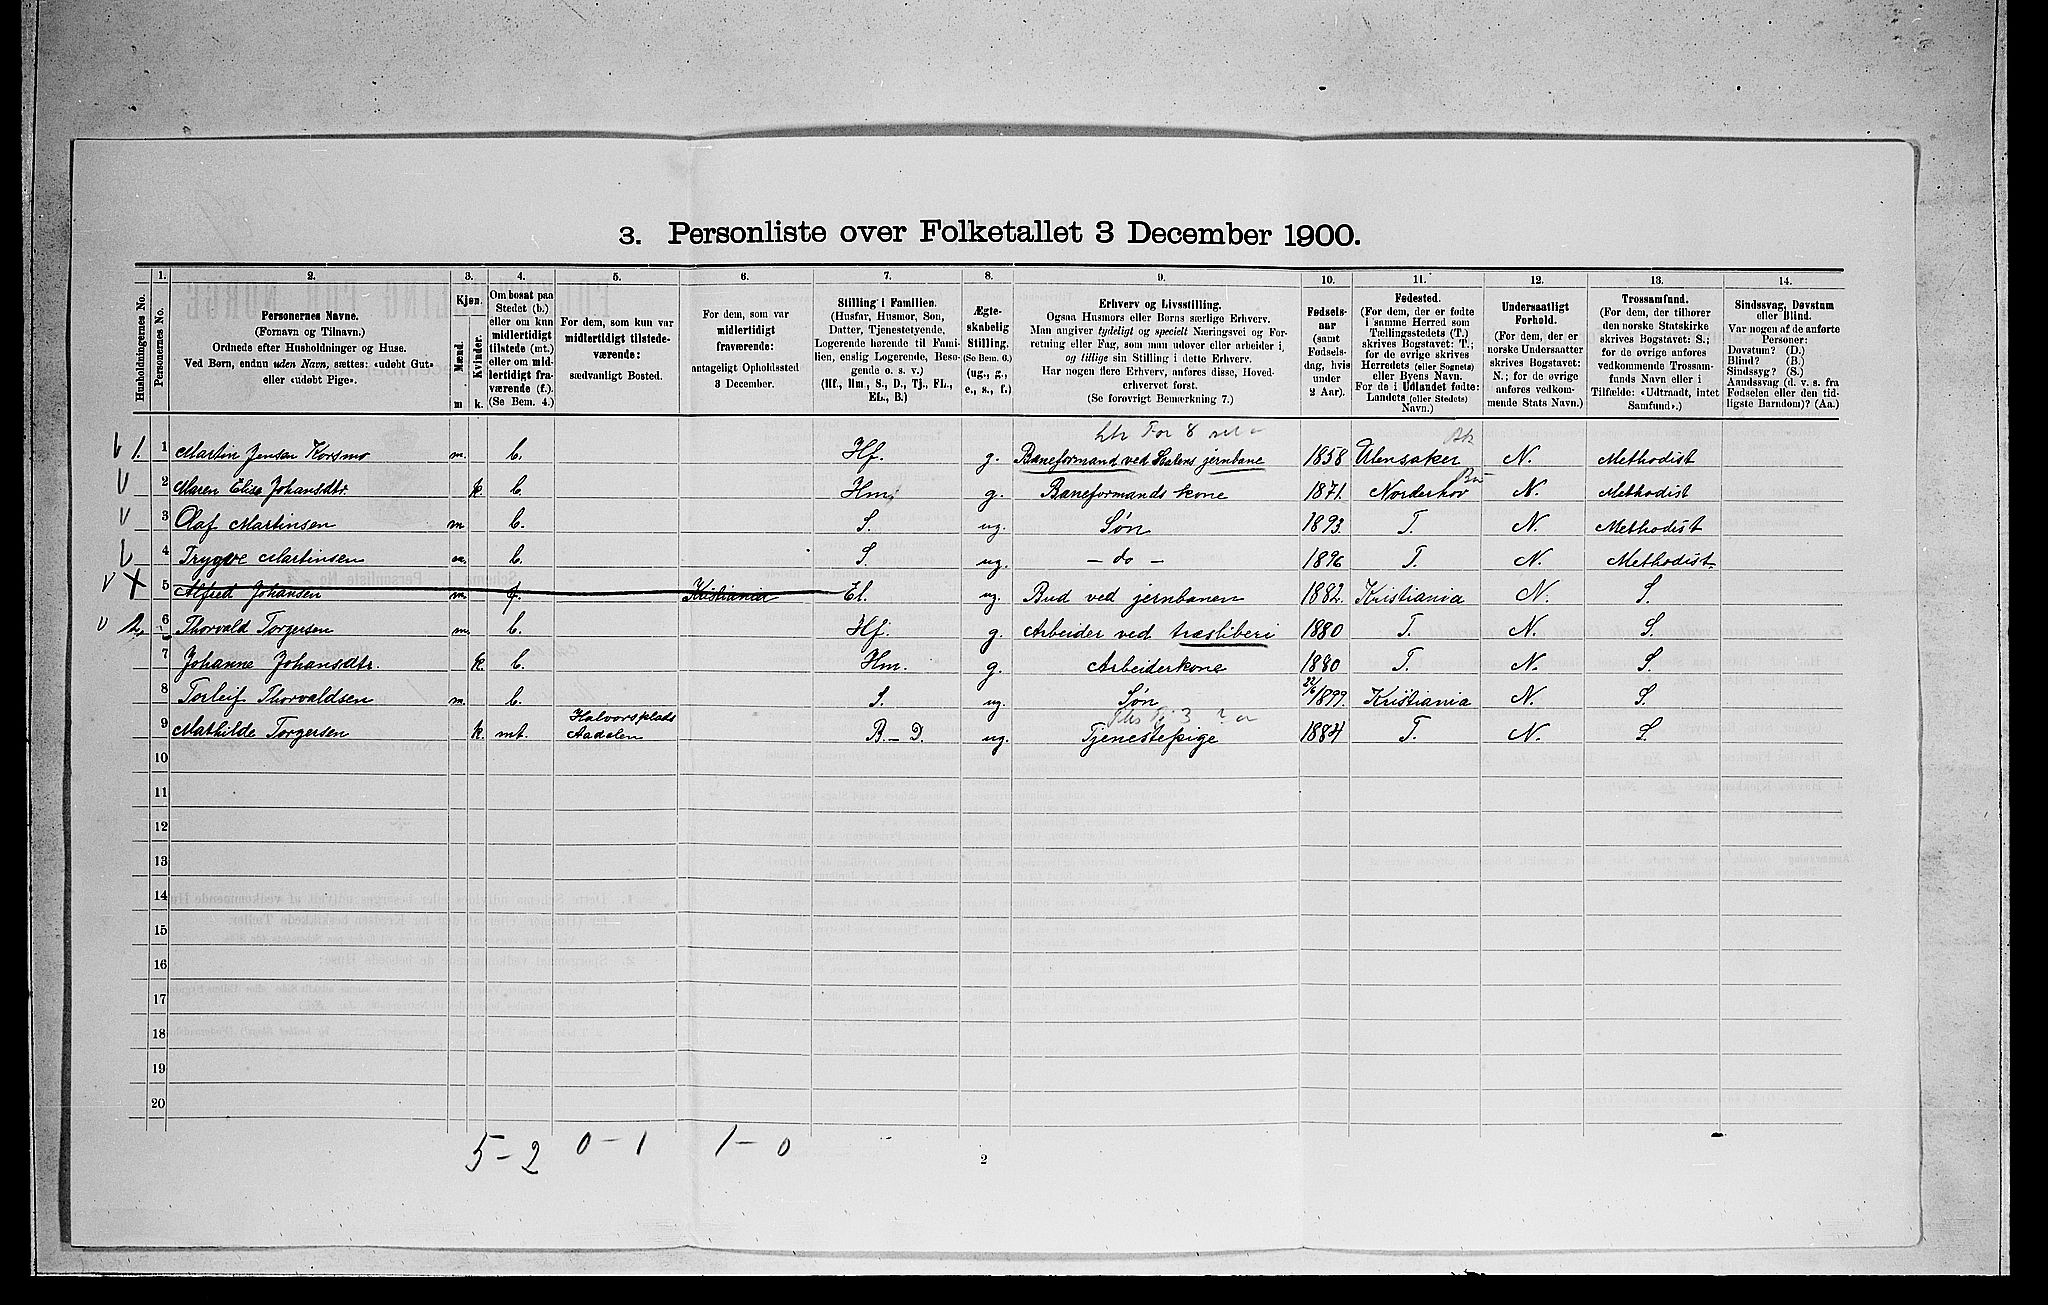 3. Personliste over Folketallet 3 December 1900.
Husholdningernes No.
1. Personernes No.
2. Personernes Navne.
(Fornavn og Tilnavn.)
Ordnede efter Husholdninger og Huse.
Ved Børn, endnu uden Navn, sættes: «udøbt Gut»
eller «udøbt Pige».
3. Kjøn.
Mænd. Kvinder.
m k.
4. Om bosat paa
Stedet (b.)
eller om kun
midlertidigt
tilstede (mt.)
eller om mid-
lertidigt fra-
værende (f.).
(Se Bem. 4.)
5. For dem, som kun var
midlertidigt tilstede-
værende:
sædvanligt Bosted.
6. For dem, som var
midlertidigt
fraværende:
antageligt Opholdssted
3 December.
7. Stilling i Familien.
(Husfar, Husmor, Søn,
Datter, Tjenestetyende,
Logerende hørende til Fami-
lien, enslig Logerende, Besø-
gende o. s. v.)
(Hf., Hm., S., D., Tj., FL.,
EL., B.)
8. Ægte-
skabelig
Stilling.
(Se Bem. 6.)
(ug., g.,
e., s., f.)
9. Erhverv og Livsstilling.
Ogsaa Husmors eller Børns særlige Erhverv.
Man angiver tydeligt og specielt Næringsvei og For-
retning eller Fag, som man udøver eller arbeider i,
og tillige sin Stilling i dette Erhverv.
Har nogen flere Erhverv, anføres disse, Hoved-
erhvervet først.
(Se forøvrigt Bemærkning 7.)
10. Fødsels-
aar
(samt
Fødsels-
dag, hvis
under
2 Aar).
11. Fødested.
(For dem, der er fødte
i samme Herred som
Tællingsstedets (T.)
skrives Bogstavet: T.;
for de øvrige skrives
Herredets (eller Sognets)
eller Byens Navn.
For de i Udlandet fødte:
Landets (eller Stedets)
Navn.)
12. Undersaatligt
Forhold.
(For dem, der er
norske Undersaatter
skrives Bogstavet:
N.; for de øvrige
anføres vedkom-
mende Stats Navn.)
13. Trossamfund.
(For dem, der tilhører
den norske Statskirke
skrives Bogstavet: S.;
for de øvrige anføres
vedkommende Trossam-
funds Navn eller i
Tilfælde: «Udtraadt, intet
Samfund».)
14. Sindssvag, Døvstum
eller Blind.
Var nogen af de anførte
Personer:
Døvstum? (D.)
Blind? (B.)
Sindssyg? (S.)
Aandssvag (d. v. s. fra
Fødselen eller den tid-
ligste Barndom)? (Aa.)
1. 1 Martin Jensen Korsmo m. b. Hf. g. Baneformand ved Statens jernbane 1858 Ulensaker N. Methodist
2 Maren Elise Johansdtr. k. b. Hm. g. Baneformands kone 1871. Norderhov N. Methodist
3 Olaf Martinsen m b. S. ug. Søn 1893. T. N. Methodist
4 Trygve Martinsen m. b. S. ug. – do – 1896 T. N. Methodist.
5 Alfred Johansen m. f. Kristiania El. ug. Bud ved jernbanen 1882. Kristiania N. S.
2. 6 Thorvald Torgersen m. b. Hf. g. Arbeider ved træsliberi 1880 T. N. S.
7 Johanne Johansdtr. k. b. Hm. g. Arbeiderkone 1880 T. N. S.
8 Torleif Thorvaldsen m. b. S. ug. Søn 22/6 1899. Kristiania N. S.
9 Mathilde Torgersen k. mt. Halvorsplads Aadalen B. – D. ug. Tjenestepige 1884 T. N. S.
10
11
12
13
14
15
16
17
18
19
20
5–2 0–1 1–0
2